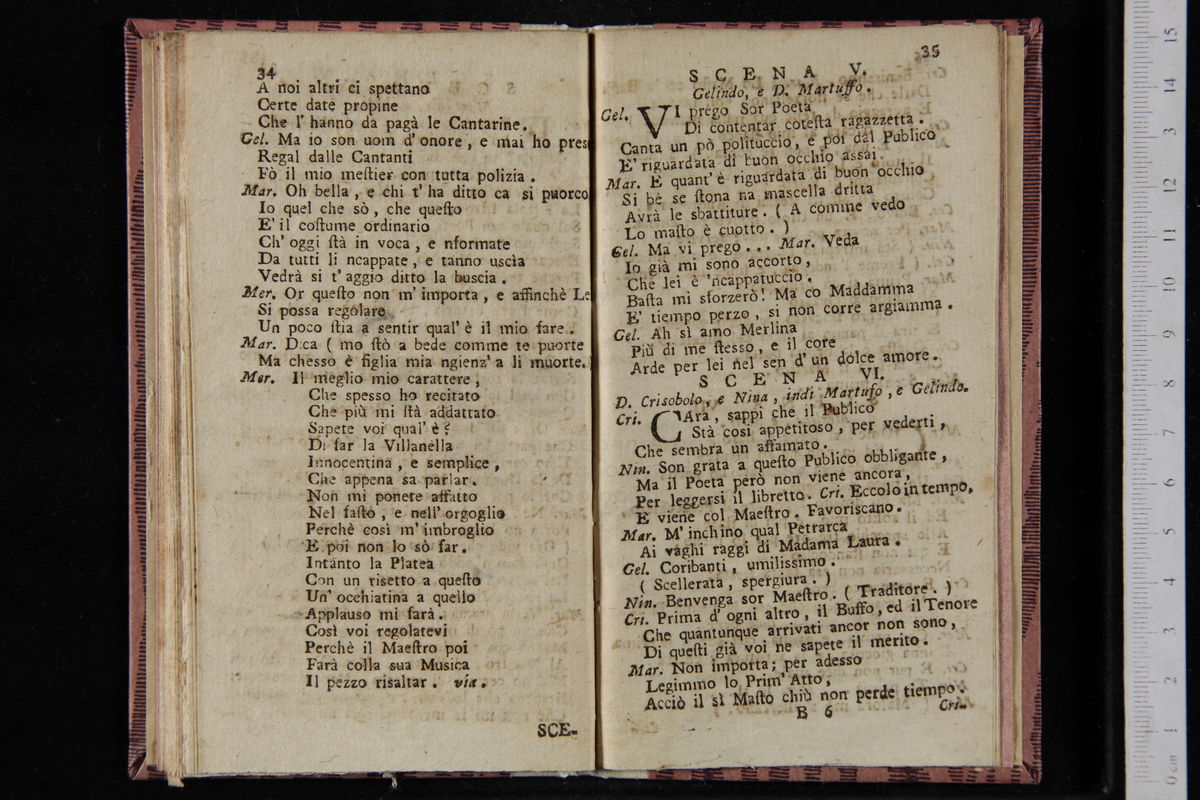 34
A noi altri ci spettano
Certe date propine
Che l' hanno da pagà le Cantarine.
Gel. Ma io son uom d' onore , e mai ho pres
Regal dalle Cantanti
Fò il mio meſtier con tutta polizia .
Mar. Oh bella , e chi t' ha ditto ca si puorco
Io quel che sò , che queſto
E' il coſtume ordinario
Ch' oggi ſtà in voca , e nformate
Da tutti li ncappate , e tanno uscìa
Vedrà si t' aggio ditto la buscia .
Mer. Or queſto non m' importa , e affinchè Le
Si possa regolare
Un poco ſtia a sentir qual' è il mio fare .
Mar. D:ca ( mo ſtò a bede comme te puorte
Ma chesso è figlia mia ngienz' a li muorte. )
Mer. Il meglio mio carattere ,
Che spesso ho recitato
Che più mi ſtà addattato
Sapete voi qual' è ?
Di far la Villanella
Innocentina , e semplice ,
Che appena sa parlar .
Non mi ponete affatto
Nel faſto , e nell' orgoglio
Perchè così m' imbroglio
E poi non lo sò far .
Intanto la Platea
Con un risetto a queſto
Un' occhiatina a quello
Applauso mi farà .
Così voi regolatevi
Perchè il Maeſtro poi
Farà colla sua Musica
Il pezzo risaltar . via .
SCE-
35
SCENA V.
Gelindo, e D. Martuffo .
Gel. VI prego Sor Poeta
Di contentar coteſta ragazzetta .
Canta un pò polituccio , e poi dal Publico
E' riguardata di buon occhio assai .
Mar. E quant' è riguardata di buon occhio
Si bè se ſtona na mascella dritta
Avrà le sbattiture . ( A comme vedo
Lo maſto è cuotto . )
Gel. Ma vi prego . . . Mar. Veda
Io già mi sono accorto ,
Che lei è 'ncappatuccio .
Baſta mi sforzerò ! Ma co Maddamma
E' tiempo perzo , si non corre argiamma .
Gel. Ah sì amo Merlina
Più di me ſtesso , e il core
Arde per lei nel sen d' un dolce amore .
SCENA VI.
D. Crisobolo, e Nina , indi Martufo , e Gelindo.
Cri. CAra , sappi che il Publico
Stà così appetitoso , per vederti ,
Che sembra un affamato .
Nin. Son grata a queſto Publico obbligante ,
Ma il Poeta però non viene ancora ,
Per leggersi il libretto . Cri. Eccolo in tempo,
E viene col Maeſtro . Favoriscano .
Mar. M' inchino qual Petrarca
Ai vaghi raggi di Madama Laura .
Gel. Coribanti , umilissimo .
( Scellerata , spergiura . )
Nin. Benvenga sor Maeſtro . ( Traditore . )
Cri. Prima d' ogni altro , il Buffo , ed il Tenore
Che quantunque arrivati ancor non sono ,
Di queſti già voi ne sapete il merito .
Mar. Non importa ; per adesso
Legimmo lo Prim' Atto ,
Acciò il sì Maſto chiù non perde tiempo .
B 6
Cri.